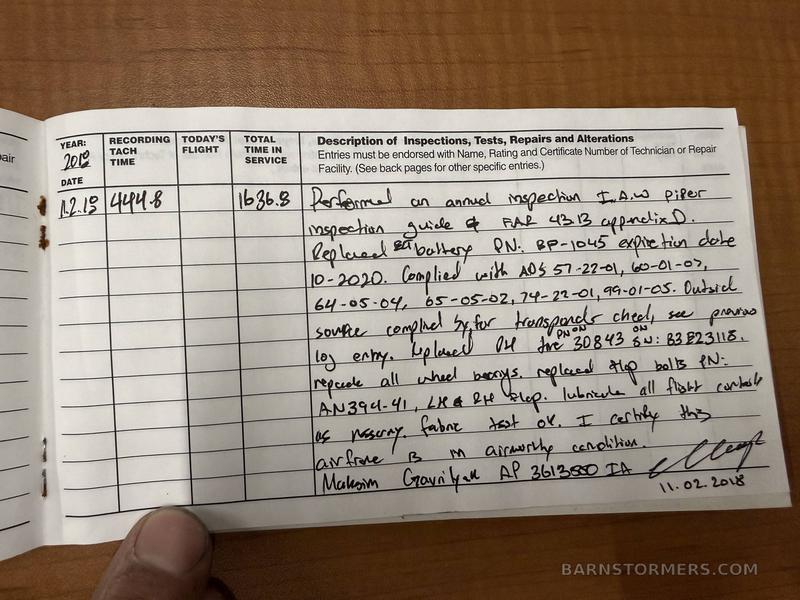 air
YEAR: 2018
DATE
RECORDING TACH TIME
TODAY'S FLIGHT
TOTAL TIME IN SERVICE
Description of Inspections, Tests, Repairs and Alterations
Entries must be endorsed with Name, Rating and Certificate Number of Technician or Repair
Facility. (See back pages for other specific entries.)
11.2.18 444.8 1636.8 Performed an annual inspection I.A.W Piper
inspection guide & FAR 43.13 appendix D.
Replaced battery PN: BP-1045 expiration date
10-2020. Complied with ADS 57-22-01, 60-01-07,
64-05-04, 65-05-02, 74-22-01, 99-01-05. Outside
source complied by, for transponder check, see previous
log entry. Replaced RH tire PN ON 30843 ON SN: 83E23118.
repack all wheel bearings. replaced flap bolts PN:
AN394-41, LH & RH flap. lubricate all flight controls
as necessary. fabric test ok. I certify this
airframe is in airworthy condition.
Maksim AP 3613550 IA
11.02.2018
BARNSTORMERS.COM